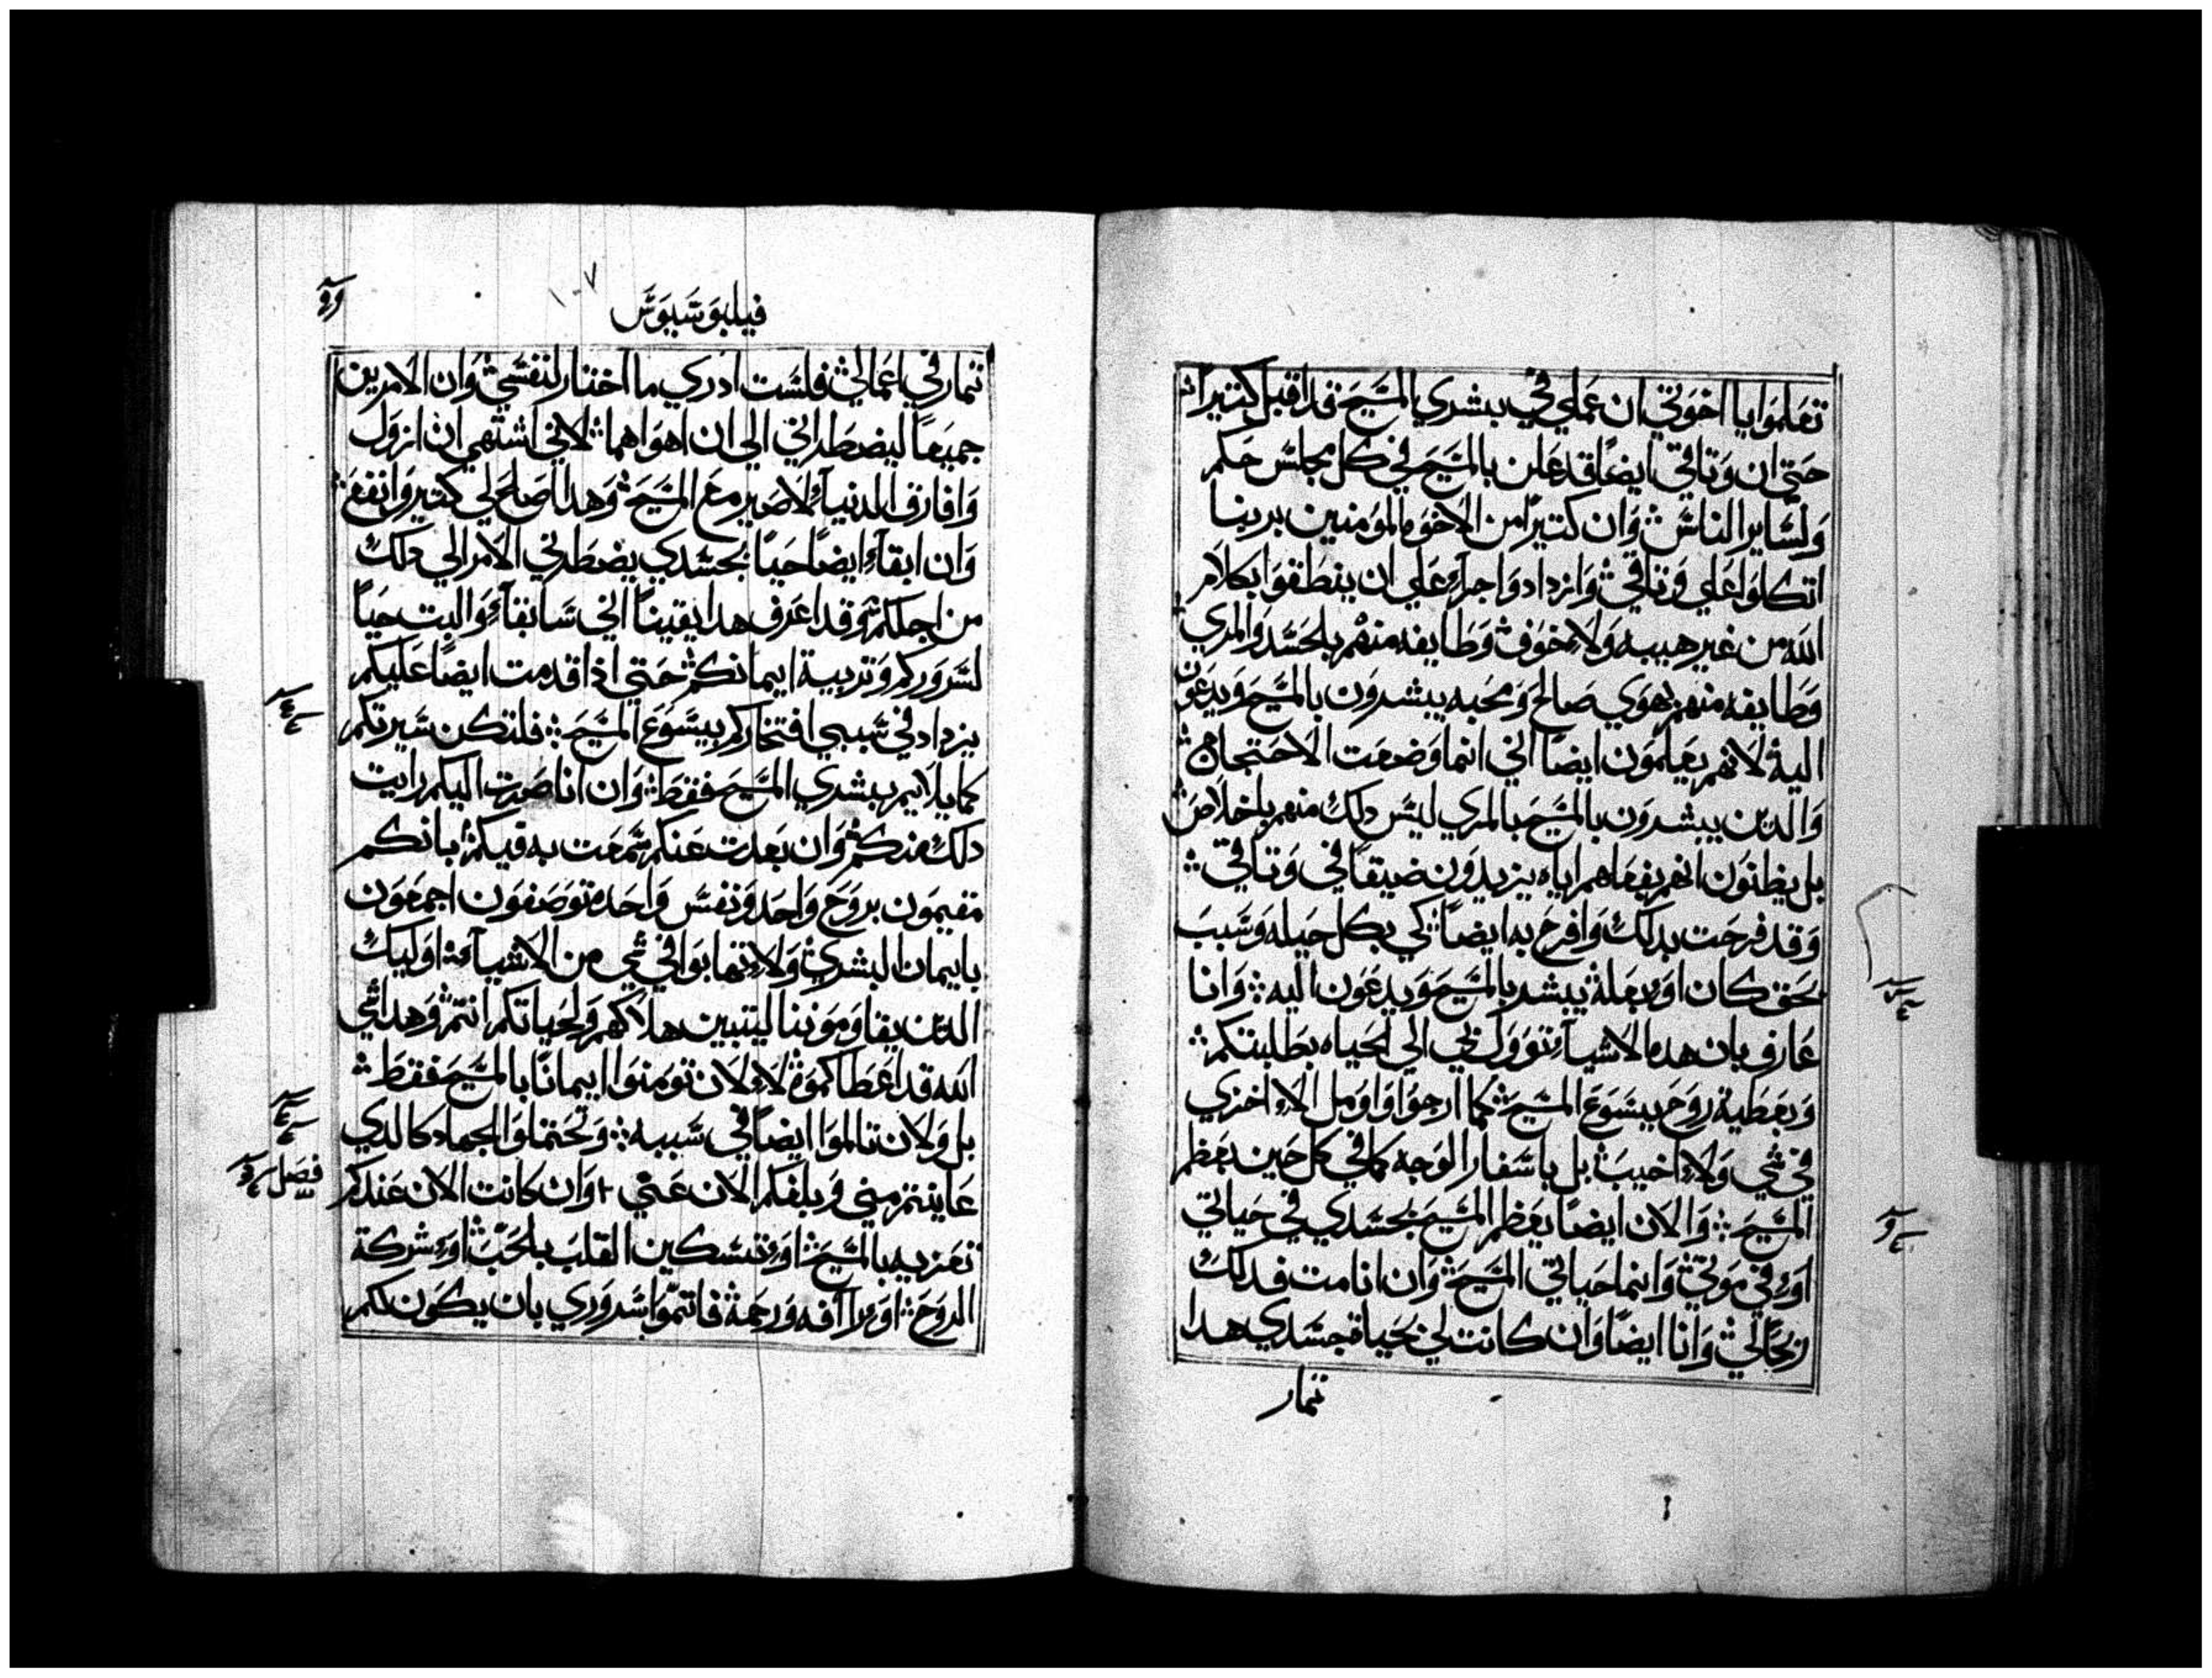 تعلموا يا اخوتي ان عملي في بشري المسيح قد اقبل كتيرا
حتي ان وتاقي ايضا قد علن بالمسيح في كل مجلس حكم
ولساير الناس وان كتيرا من الاخوه المومنين بربنا
اتكلوا علي وتاقي وازدادوا جراء علي ان ينطقوا بكلام
الله من غير هيبه ولا خوف وطايفه منهم بالحسد والمري
وطايفه منهم بهوي صالح ومحبه يبشرون بالمسيح ويدعون
اليه لانهم يعلمون ايضا اني انما وضعت الاحتجاج
والدين يبشرون بالمسيح بالمري ليس دلك منهم باخلاص
بل يظنون انهم بفعاهم اياه يزيدون ضيقا في وتاقي
وقد فرحت بدلك وافرح به ايضا كي بكل حيله وسبب
بحق كان او بعله يبشر بالمسيح ويدعون اليه وانا
عارف بان هده الاشيا تووول لي الي الحياه بطلبتكم
وبعطية روح يسوع المسيح كما ارجوا واومل الا اخزي
في شي ولا اخيب بل باسفار الوجه كما في كل حين يعظم
المسيح والان ايضا يعظم المسيح بجسدي في حياتي
او في موتي وانما حياتي المسيح وان انا مت فدلك
ربحا لي وانا ايضا وان كانت لي بحياة جسدي هدا
تمار
١٠٧
فيلبوسيوس
تمار في اعمالي فلست ادري ما اختار لنفسي وان الامرين
جميعا ليضطراني الي ان اهواهما لاني اشتهي ان ازول
وافارق الدنيا لاصير مع المسيح وهدا صالح لي كتير وانفع
وان ابقا ايضا حيا بجسدي يضطرني الامر الي دلك
من اجلكم وقد اعرف هدا يقينا اني سابقا والبت حيا
لسروركم وتربية ايمانكم حتي اذا قدمت ايضا عليكم
يزداد في سببي افتخاركم بيسوع المسيح فلتكن سيرتكم
كما يلايم بشري المسيح فقط وان انا صرت اليكم رايت
دلك منكم وان بعدت عنكم سمعت به فيكم بانكم
مقيمون بروح واحد ونفس واحده توصفون اجمعون
بايمان البشري ولا تهابوا في شي من الاشياء اوليك
الدين يقاومونا ليتبين هلاكهم ولحياتكم انتم وهدا شي
الله قد اعطاكموه لا لان تومنوا ايمانا بالمسيح فقط
بل ولان تالموا ايضا في سببه وتحتملوا الجهاد كالدي
عاينتم مني وبلغكم الان عني وان كانت الان عندكم
فصل
تعزيه بالمسيح او تسكين القلب بالحب او شركة
الروح او رافه ورحمة فاتموا سروري بان يكون لكم